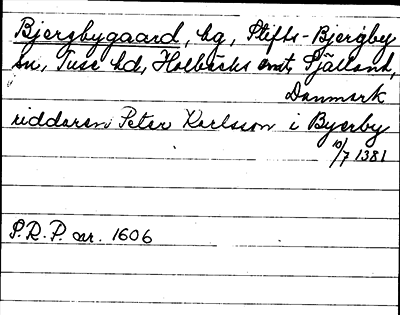 Bjergbygaard, hg, Stifts-Bjergby
sn, Tuse hd, Holbæks amt, Själland,
Danmark
riddaren Peter Karlsson i Byerby
10/7 1381
P.R.P. nr. 1606